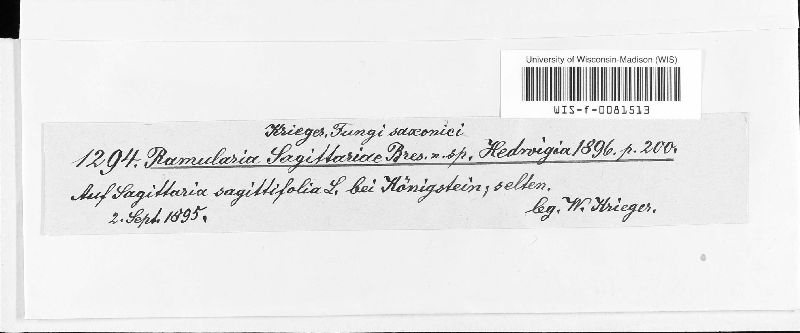 University of Wisconsin-Madison (WIS)
WIS-f-0081513
Krieger, Fungi saxonici
1294. Ramularia Sagittariae Bres. n. sp. Hedwigia 1896. p. 200.
Auf Sagittaria sagittifolia L. bei Königstein; selten.
2. Sept. 1895.
leg. W. Krieger.